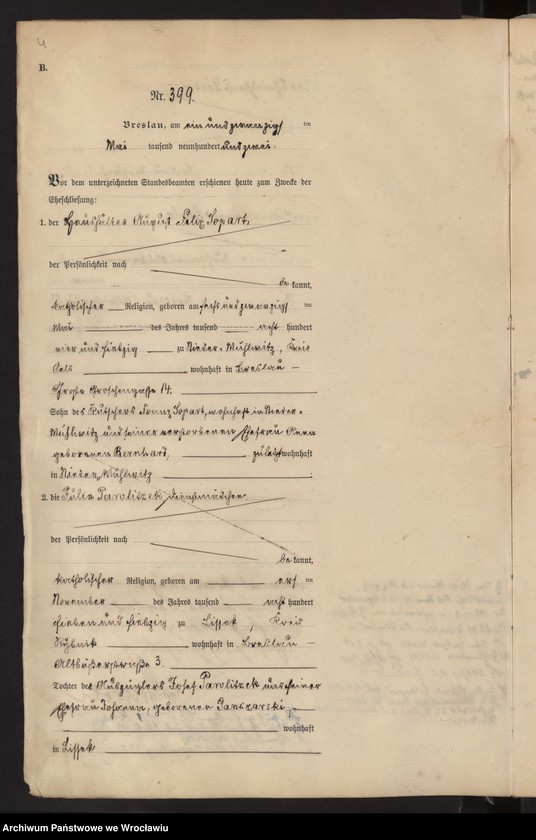 4
B.
Nr. 399.
Breslau, am ein und zwanzigsten
Mai tausend neunhundert und zwei.
Vor dem unterzeichneten Standesbeamten erschienen heute zum Zwecke der
Eheschließung:
1. der Haushälter August Felix Sopart,
der Persönlichkeit nach
be kannt,
katholischer Religion, geboren am sechs und zwanzigsten
Mai des Jahres tausend acht hundert
vier und siebzig zu Nieder-Mühlwitz, Kreis
Oels wohnhaft in Breslau -
Große Groschengasse 14.
Sohn des Kutschers Franz Sopart, wohnhaft in Nieder-
Mühlwitz und seiner verstorbenen Ehefrau Anna
geborenen Bernhard, zuletzt wohnhaft
in Nieder Mühlwitz
2. die Julie Parolitzek, Dienstmädchen,
der Persönlichkeit nach
be kannt,
katholischer Religion, geboren am elften
November des Jahres tausend acht hundert
sieben und siebzig zu Lissek, Kreis
Rybnik wohnhaft in Breslau -
Altbüßerstraße 3.
Tochter des Auszüglers Josef Parolitzek und seiner
Ehefrau Johanna, geborenen
wohnhaft
in Lissek
Archiwum Państwowe we Wrocławiu